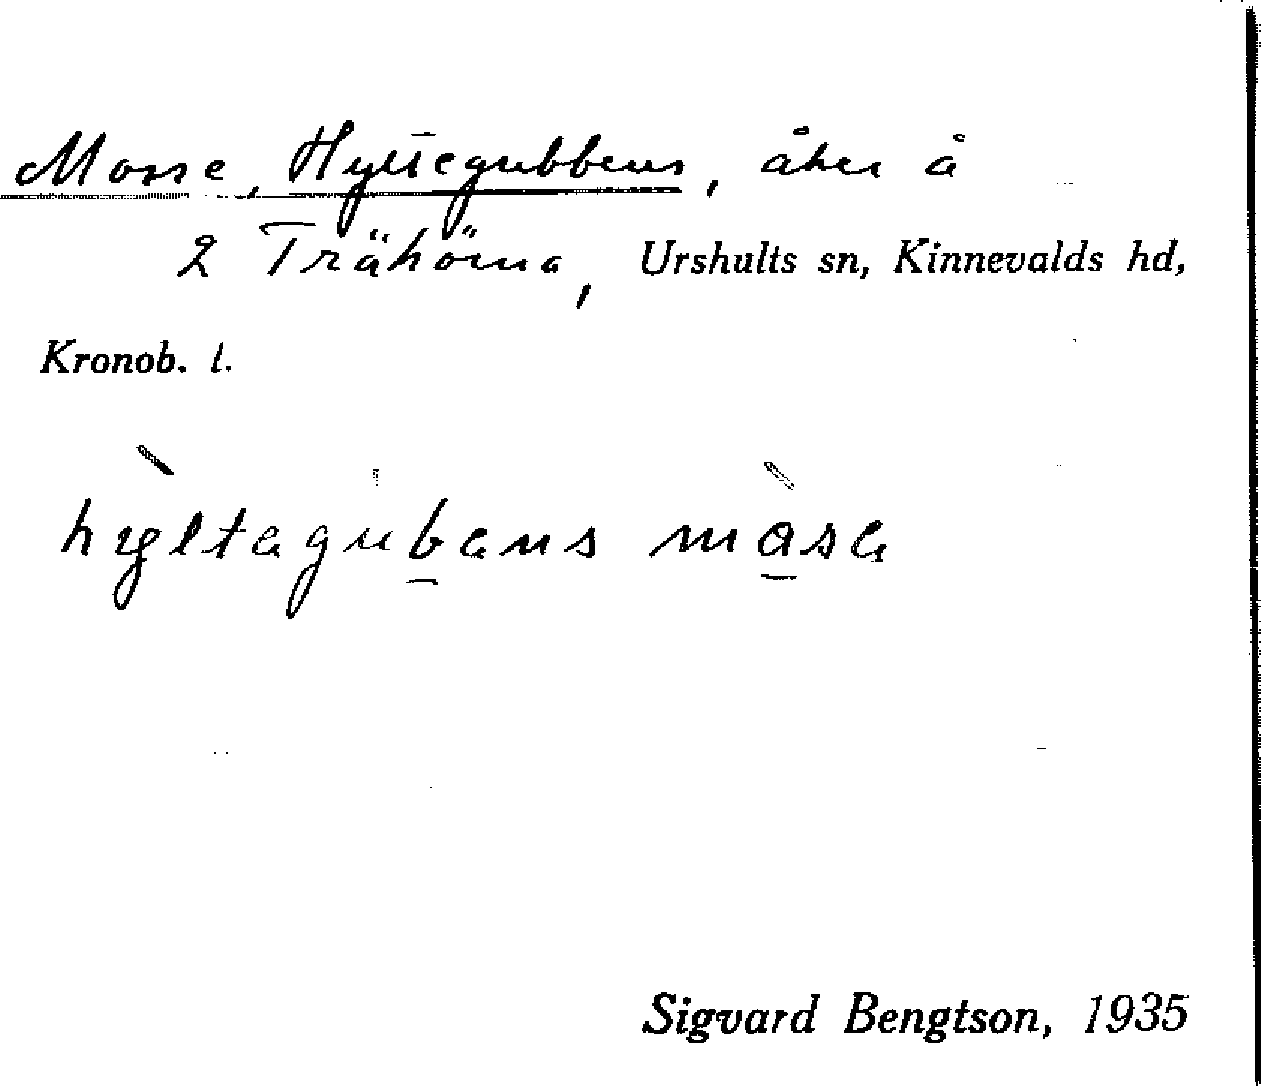 Mosse, Hyltegubbens, åker å
2 Trähörna, Urshults sn, Kinnevalds hd,
Kronob. l.
hyltagubans måsa
Sigvard Bengtson, 1935